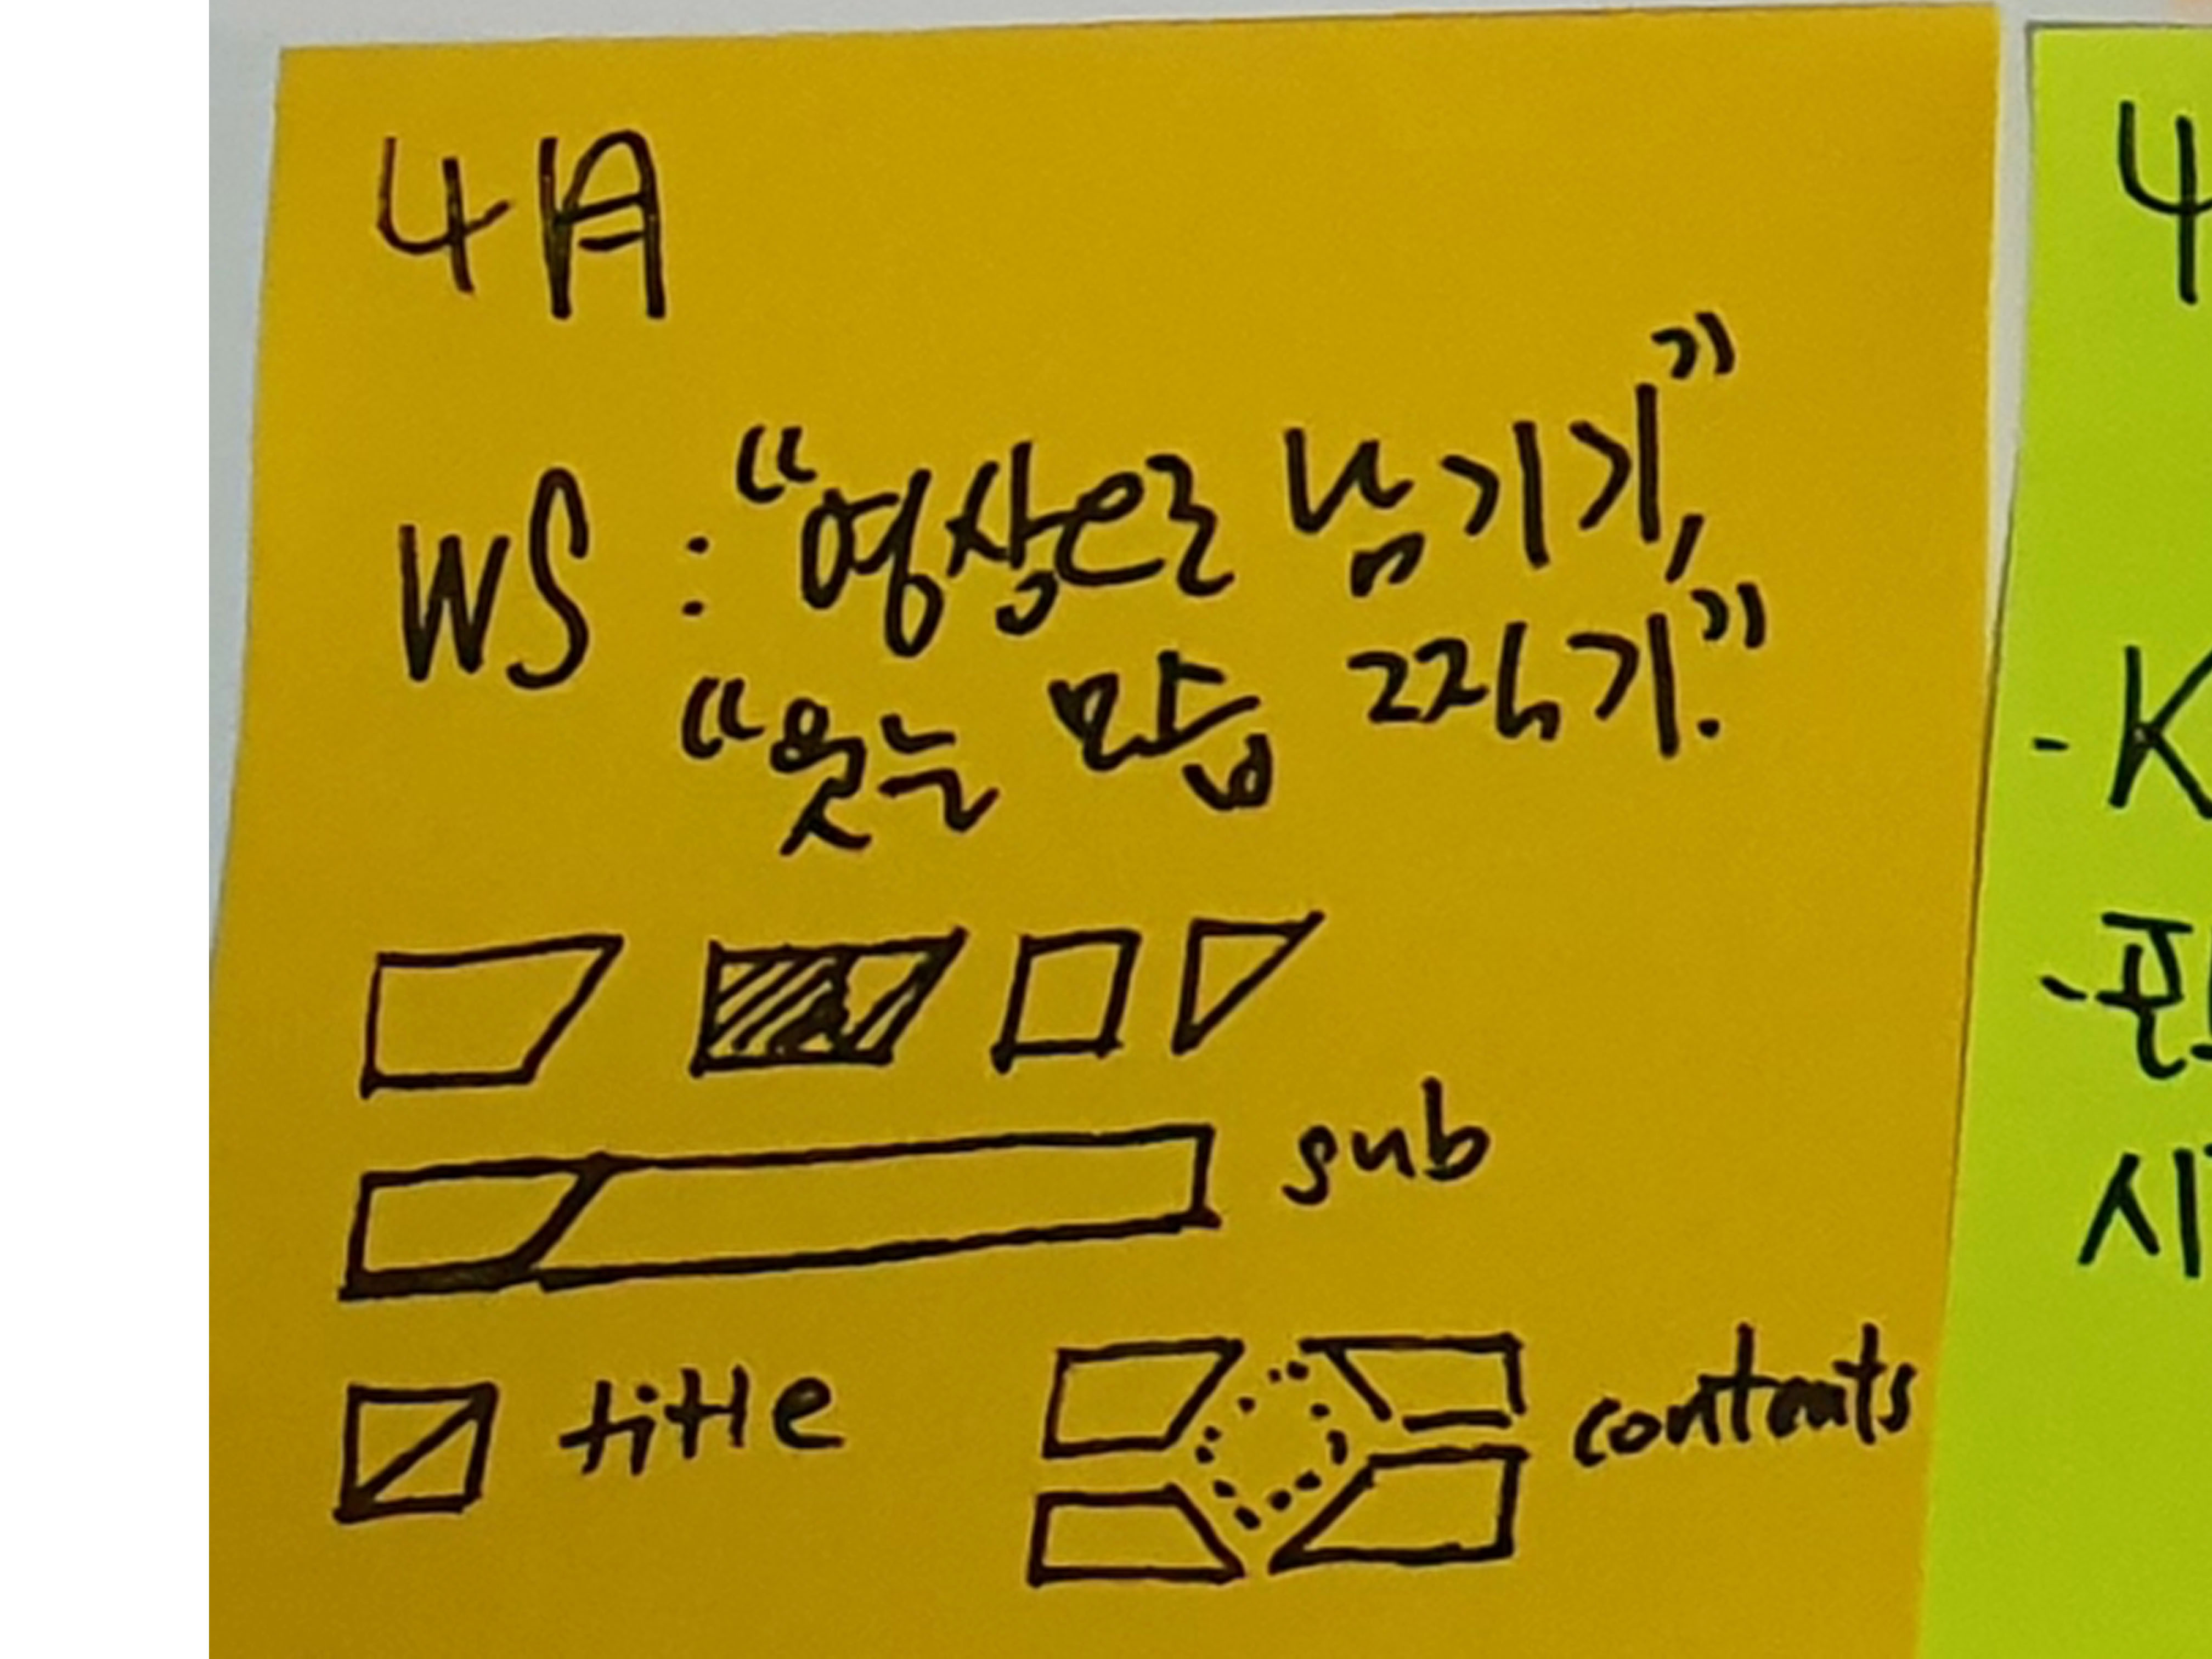 4A
WS : "영상으로 남기기,"
"웃는 맘 그리기."
sub
title
contents
4
- K
시